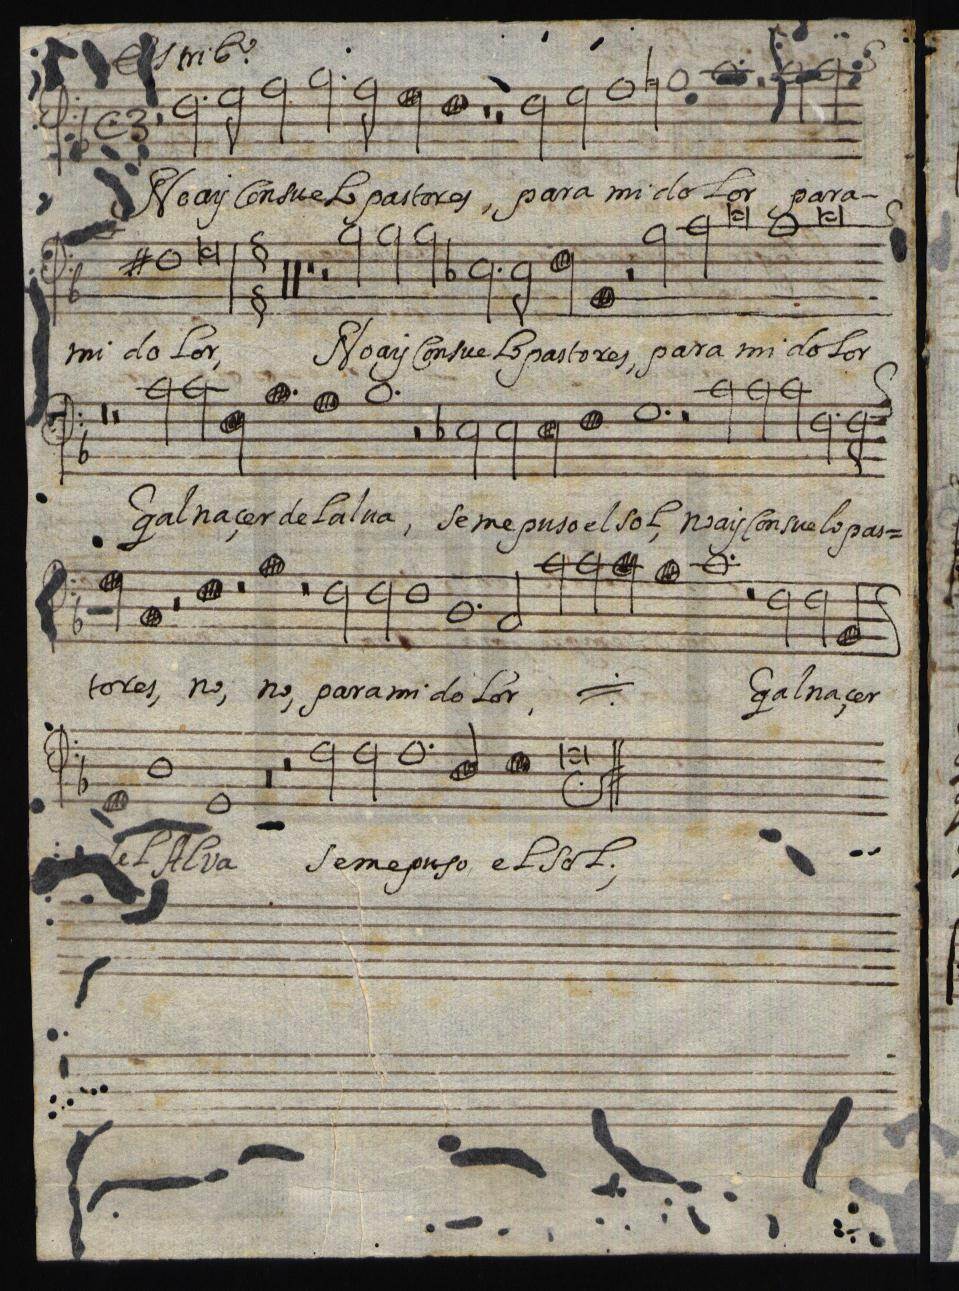 estribº
No ay Consuelo pastores, para mi dolor para-
mi dolor, No ay Consuelo pastores, para mi dolor
q̃ al naçer de la lua, se me puso el sol, no ay Consuelo pas=
tores, no, no, para mi dolor, q̃ al naçer
del Alva se me puso el Sol;